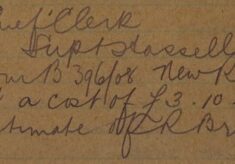 ief Clerk
Supt Hassell
our B 396/08 New K
a cost of £3.10.
timate of R R Br